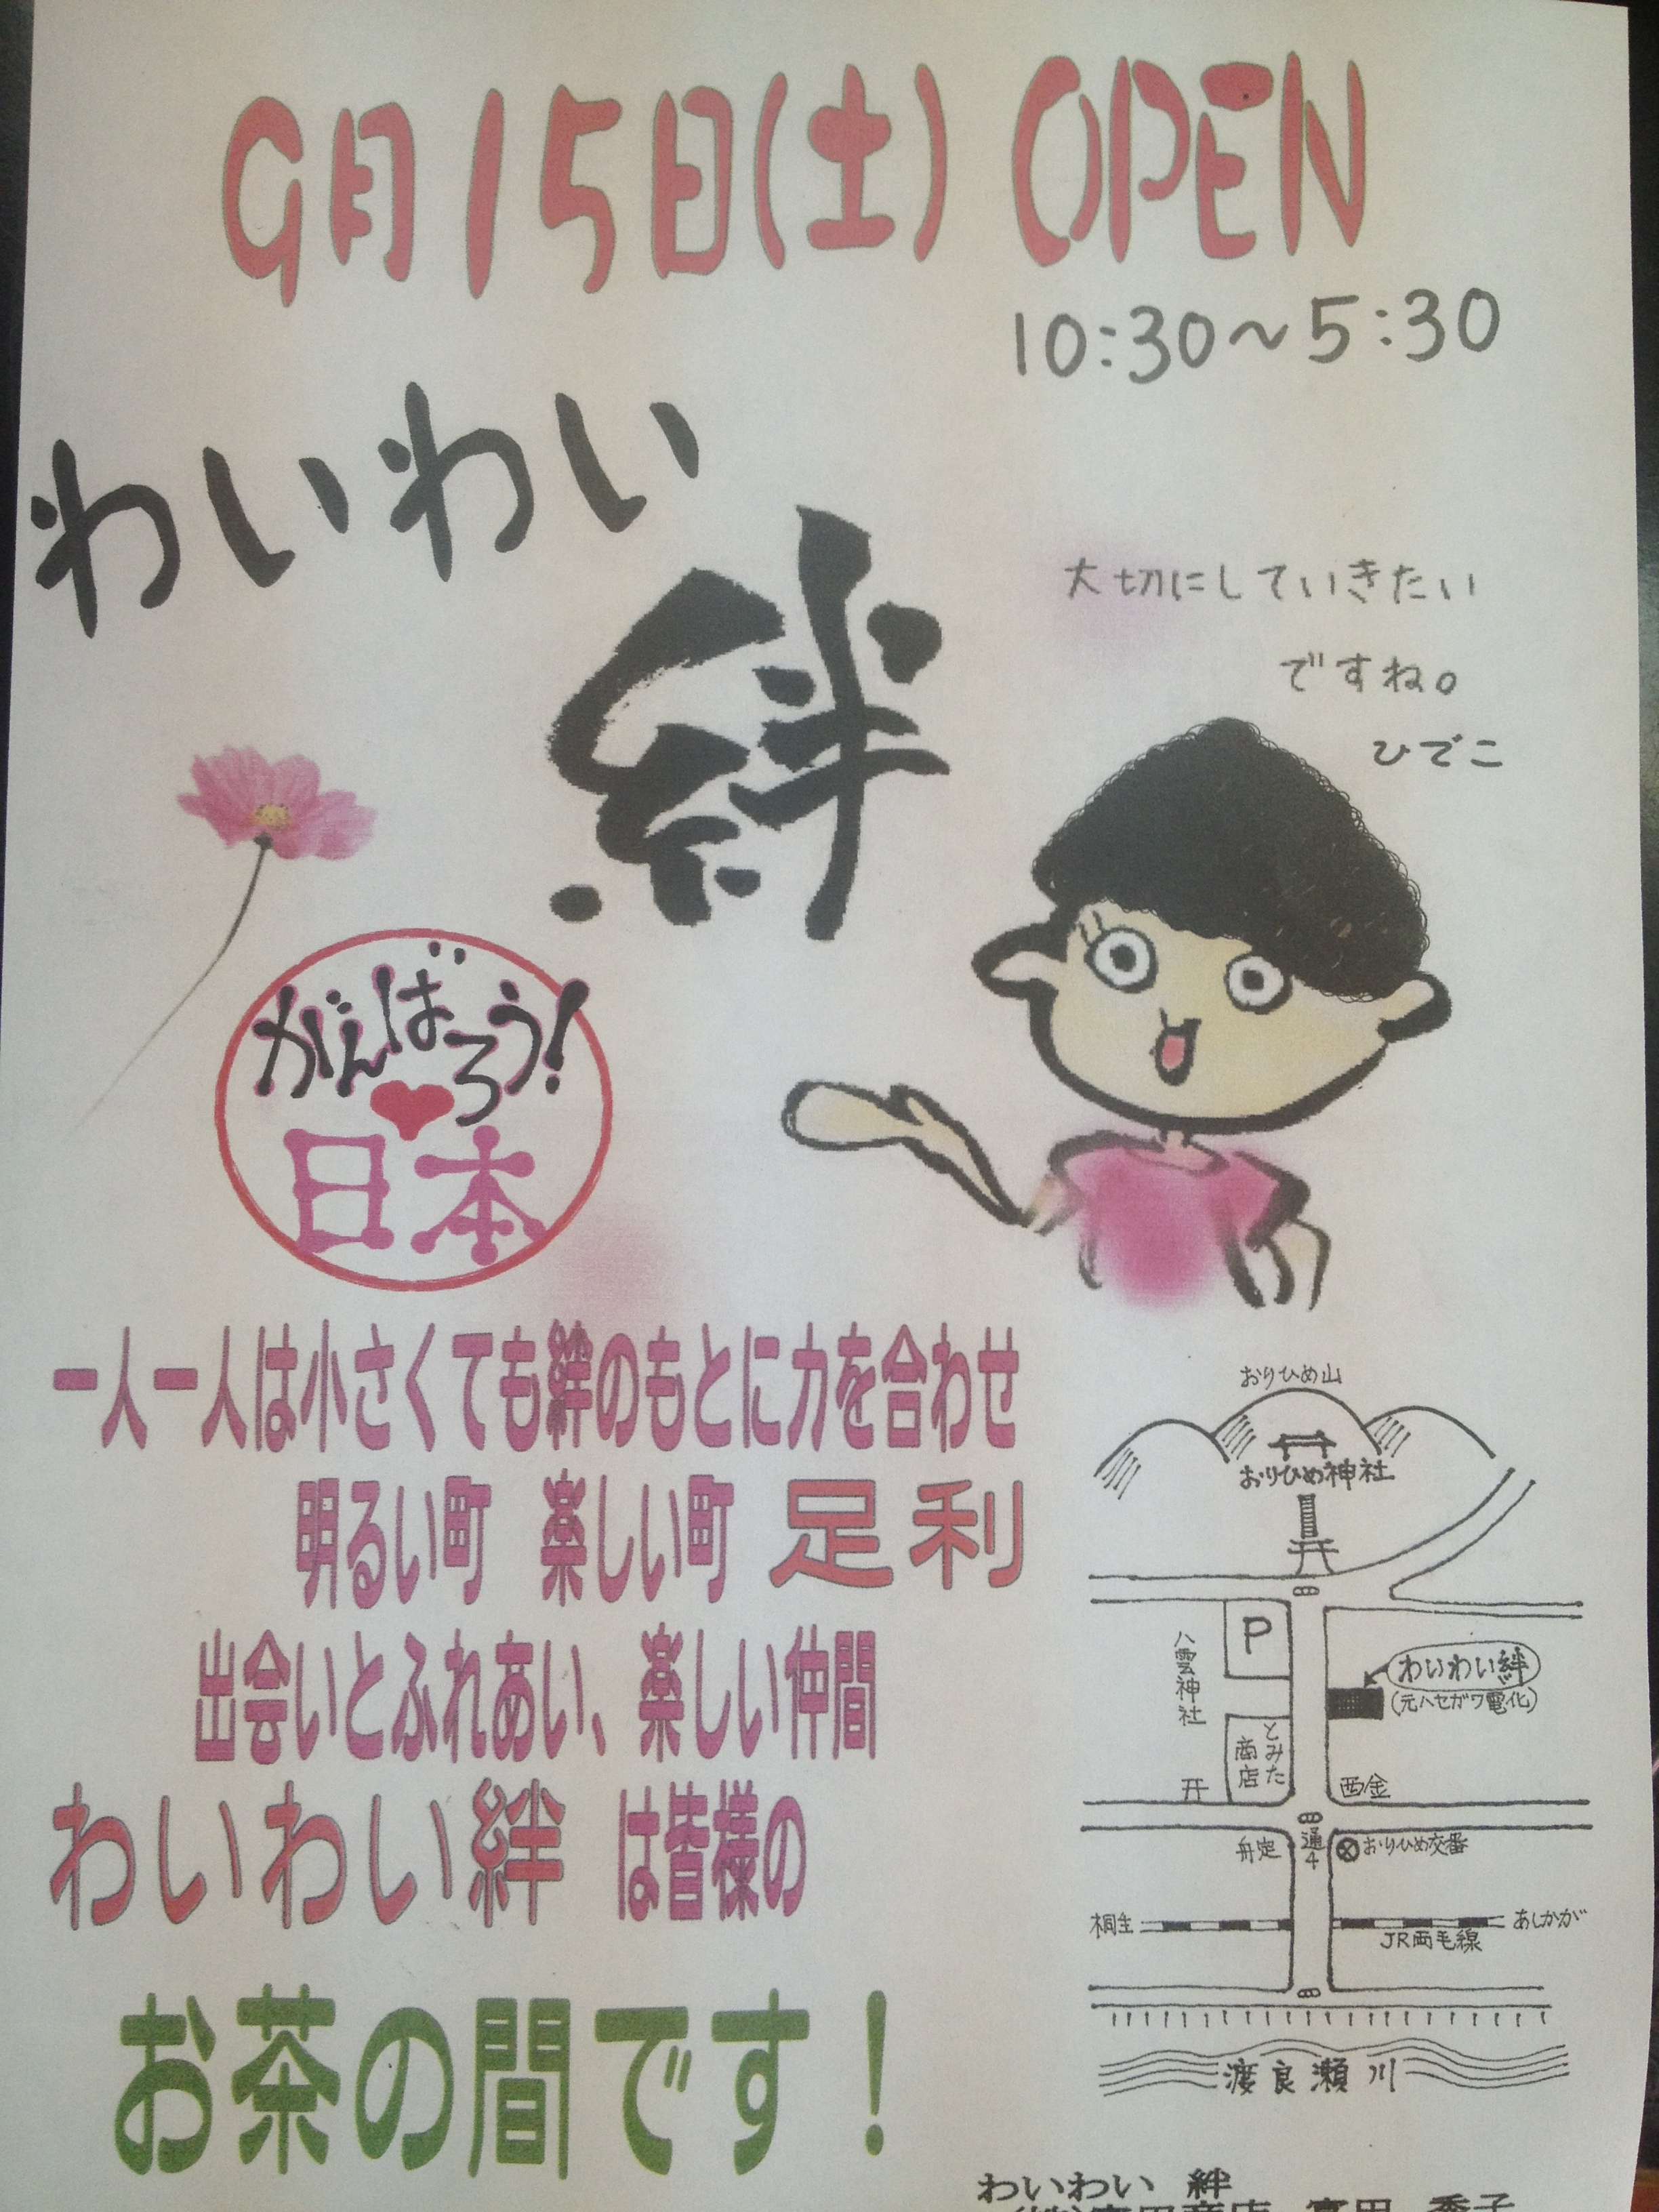 9月15日(土) OPEN
10:30～5:30
わいわい
絆
大切にしていきたい
ですね。
ひでこ
がんばろう!
日本
一人一人は小さくても絆のもとに力を合わせ
明るい町 楽しい町 足利
出会いとふれあい、楽しい仲間
わいわい絆 は皆様の
お茶の間です!
おりひめ山
おりひめ神社
P
八雲神社
わいわい絆
(元ハセガワ電化)
とみた
商店
西金
舟定
通4
おりひめ交番
桐生
あしかが
JR両毛線
渡良瀬川
わいわい 絆